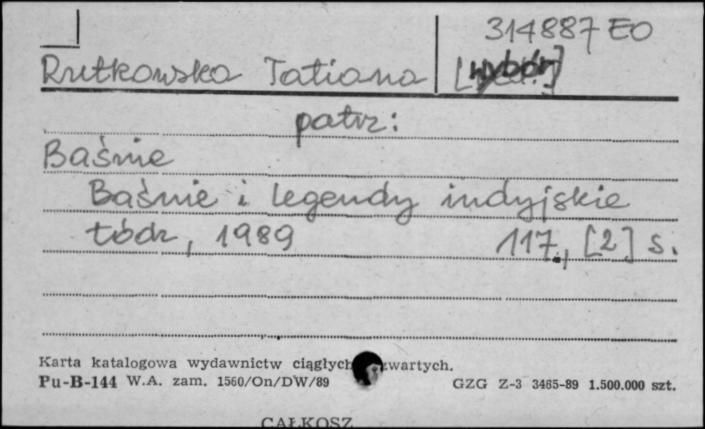 314887 EO
Rutkowska Tatiana [wybór]
patrz:
Baśnie
Baśnie i legendy indyjskie
Łódz, 1989 117, [2] s.
Karta katalogowa wydawnictw ciągłych zwartych.
Pu-B-144 W.A. zam. 1560/On/DW/89 GZG Z-3 3465-89 1.500.000 szt.
CAŁKOSZ